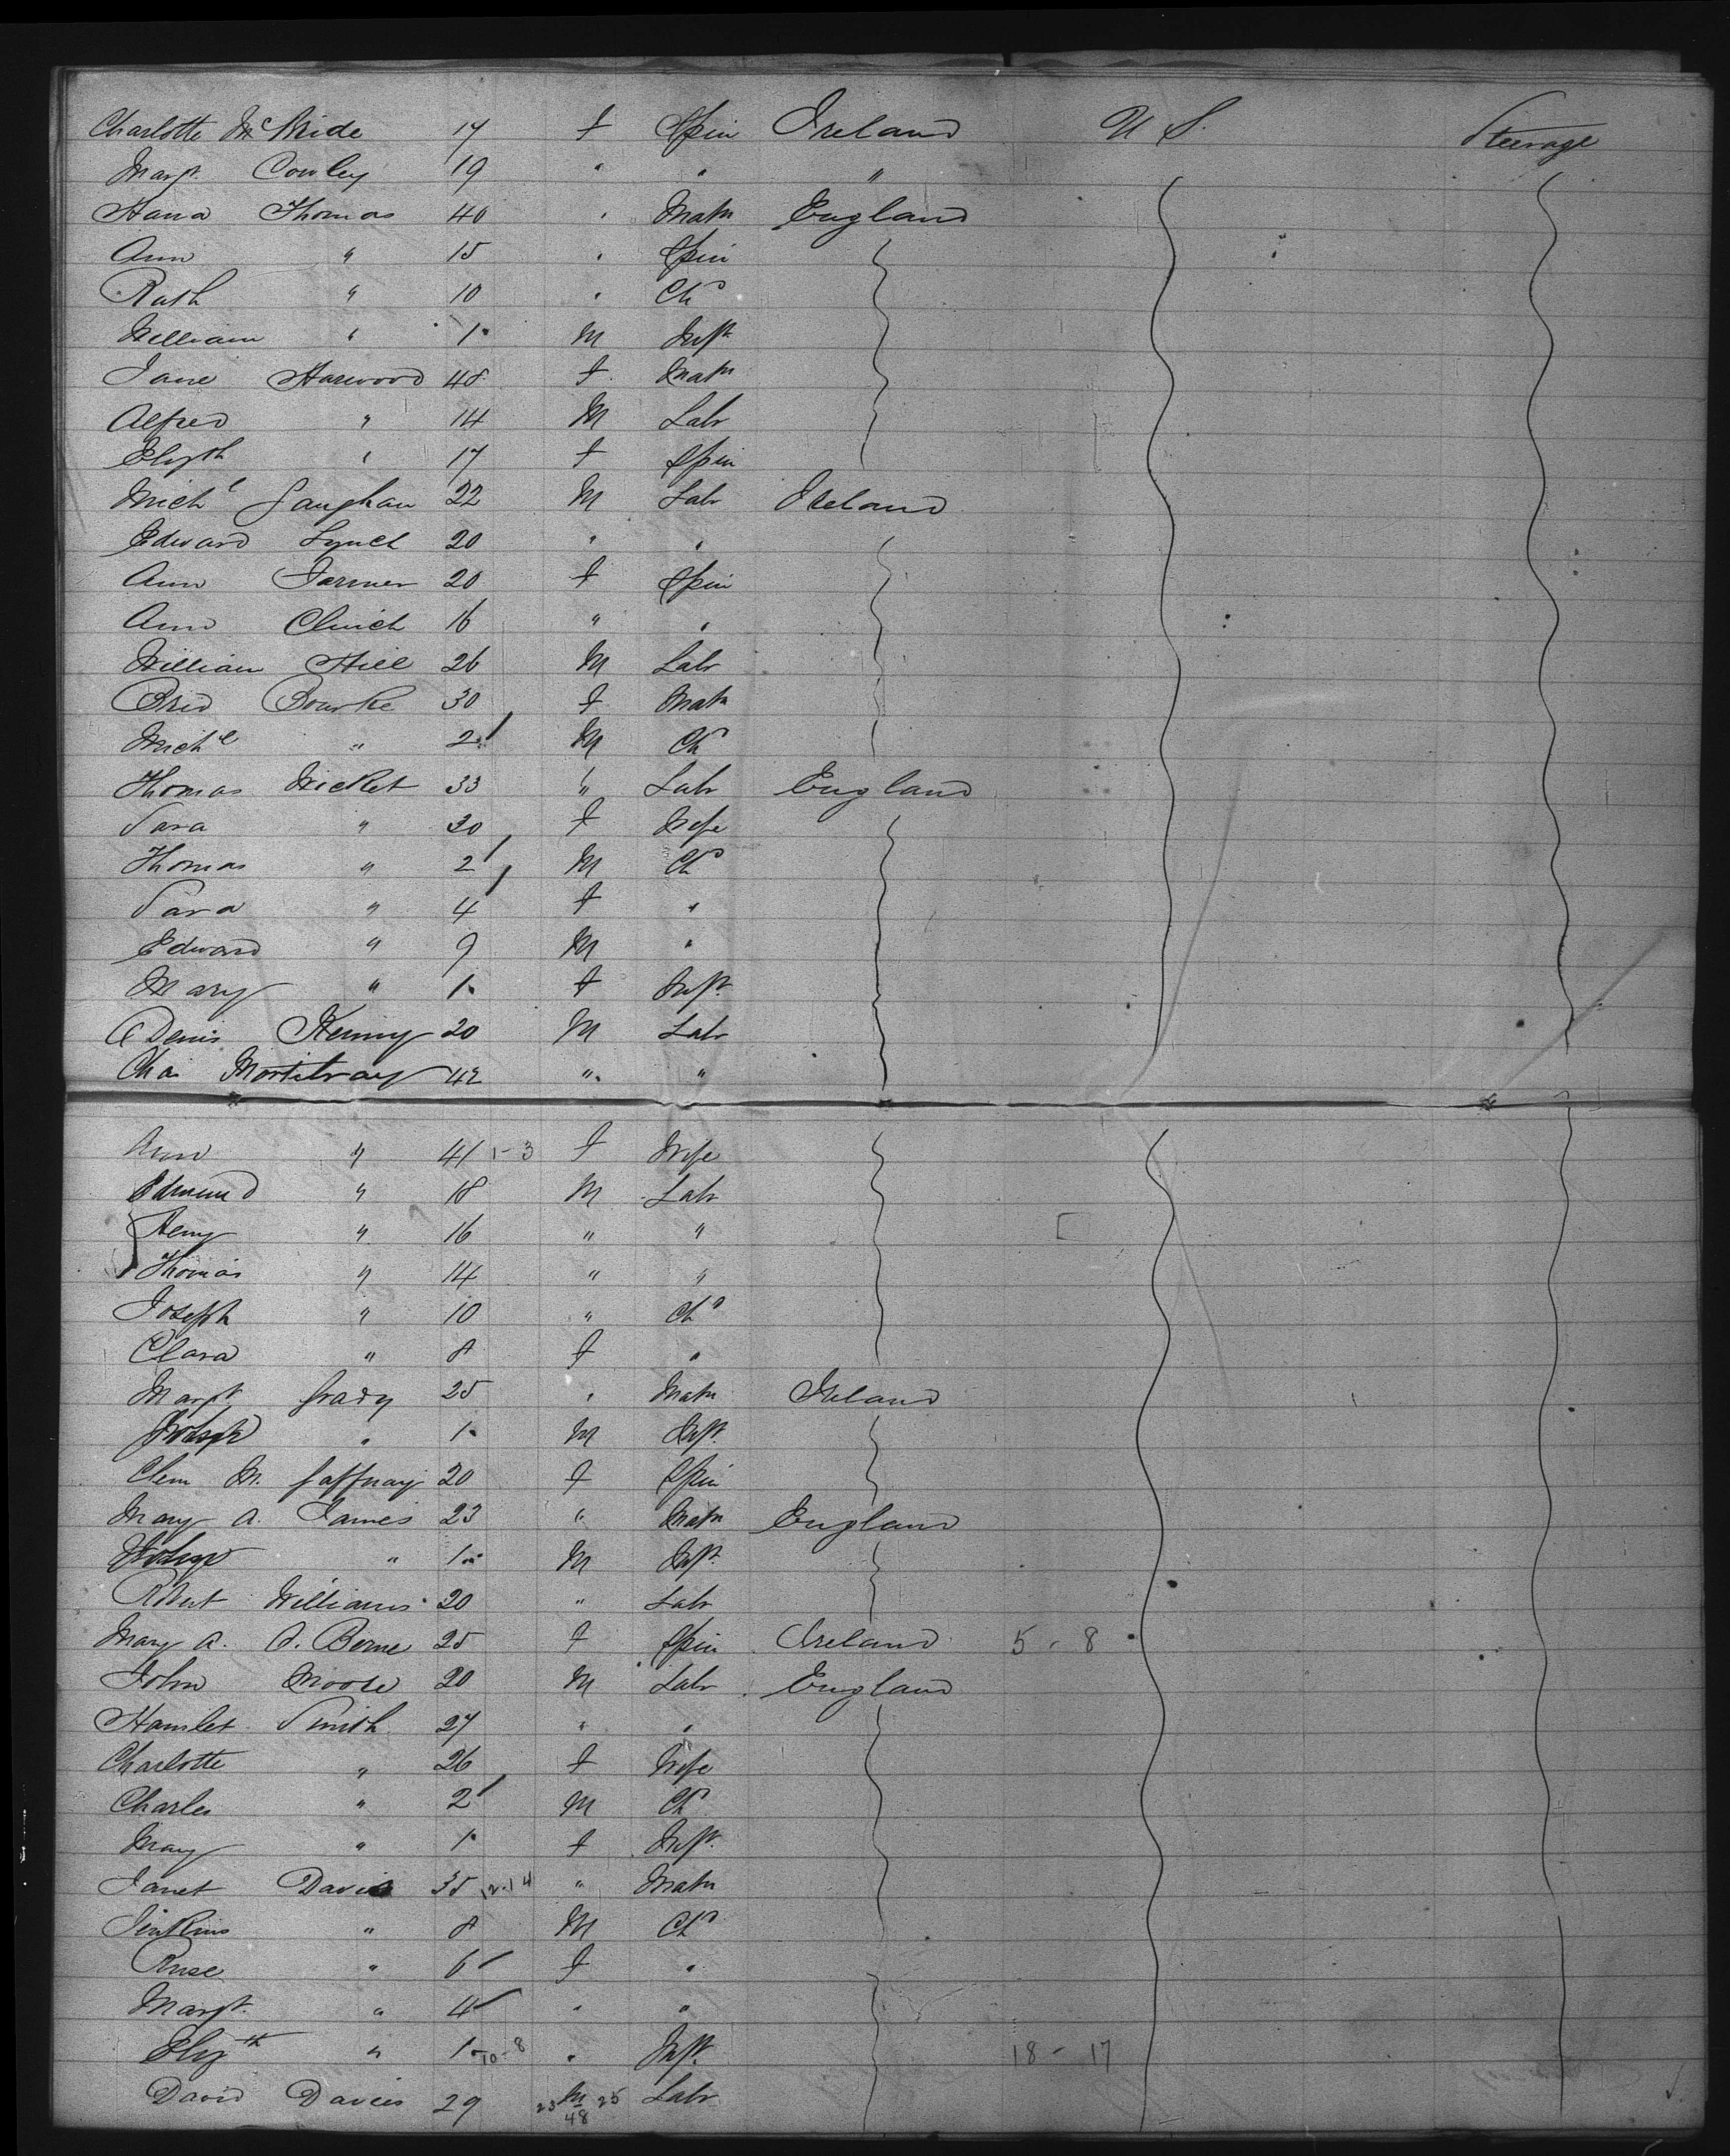 Charlotte McBride 17 f Spin Ireland U S. Steerage
Margt. Cowley 19 " " "
Hana Thomas 40 " Matn England
Ann " 15 " Spin
Ruth " 10 " Chd
William " 1 M Inft
Jane Harwood 48 f Matn
Alfred " 14 M Labr
Elizth " 17 f Spin
Michl Gaughan 22 M Labr Ireland
Edward Lynch 20 " "
Ann Farmer 20 f Spin
Ann Clinch 16 " "
William Hill 26 M Labr
Brid Bourke 30 f Matn
Michl " 2 M Chd
Thomas Wicket 33 " Labr England
Sara " 30 f Wife
Thomas " 2 M Chd
Sara " 4 f "
Edward " 9 M "
Mary " 1 f Inft
Denis Kenny 20 M Labr
Chas 42 " "
Ann " 41 1-3 f Wife
Edmund " 18 M Labr
Henry " 16 " "
Thomas " 14 " "
Joseph " 10 " Chd
Clara " 8 f "
Margt Grady 25 " Matn Ireland
Joseph " 1 M Inft
M. Gaffnay 20 f Spin
Mary A. James 23 " Matn England
" 1 M Inft
Robert Williams 20 " Labr
Mary A. O. Berne 25 f Spin Ireland 5 - 8
John Moore 20 M Labr England
Hamlet Smith 27 " "
Charlotte " 26 f Wife
Charles " 2 M Chd
Mary " 1 f Inft
Janet Davis 35 12-14 " Matn
Jenkins " 8 M Chd
Rose " 6 f "
Margt. " 4 " "
Elizth " 1 10-8 " Inft. 18 - 17
David Davies 29 23 M 25 Labr
48